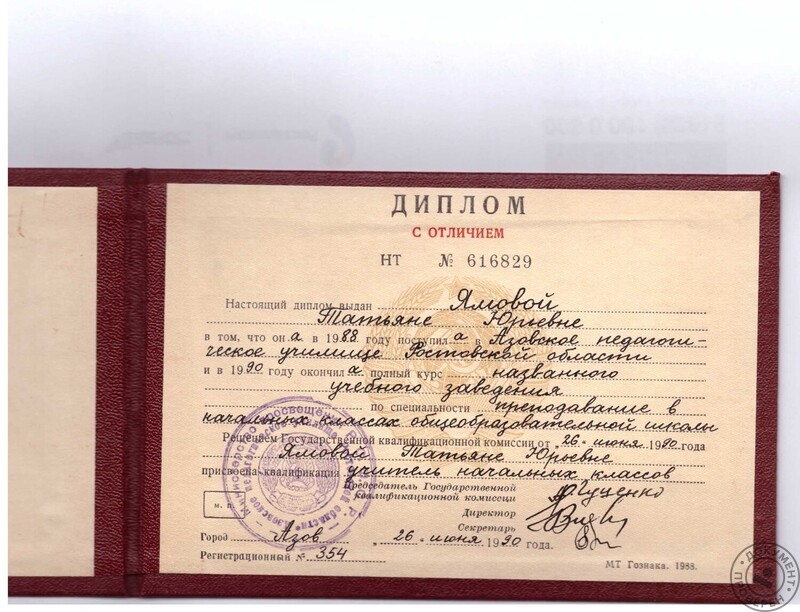 ДИПЛОМ
С ОТЛИЧИЕМ
НТ № 616829
Настоящий диплом выдан Ямовой
Татьяне Юрьевне
в том, что он а в 1988 году поступил а в Азовское педагоги-
ческое училище Ростовской области
и в 1990 году окончил а полный курс названного
учебного заведения
по специальности преподавание в
начальных классах общеобразовательной школы
Решением Государственной квалификационной комиссии от "26" июня 1990 года
Ямовой Татьяне Юрьевне
присвоена квалификация учитель начальных классов
Председатель Государственной
квалификационной комиссии Гуценко
Директор
Секретарь
М. П.
Город Азов "26" июня 1990 года.
Регистрационный № 354
МТ Гознака. 1988.
ДОКУМЕНТ
ПРОВЕРЕН